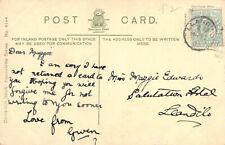 POST CARD.
FOR INLAND POSTAGE ONLY THIS SPACE MAY BE USED FOR COMMUNICATION
THE ADDRESS ONLY TO BE WRITTEN HERE.
Dear Maggie
I am sorry I have
not returned a card to
you Hoping you will
forgive me for not
writing to you sooner
Love from
Gwen
Miss Maggie Edwards
Salutation Hotel
Llandilo